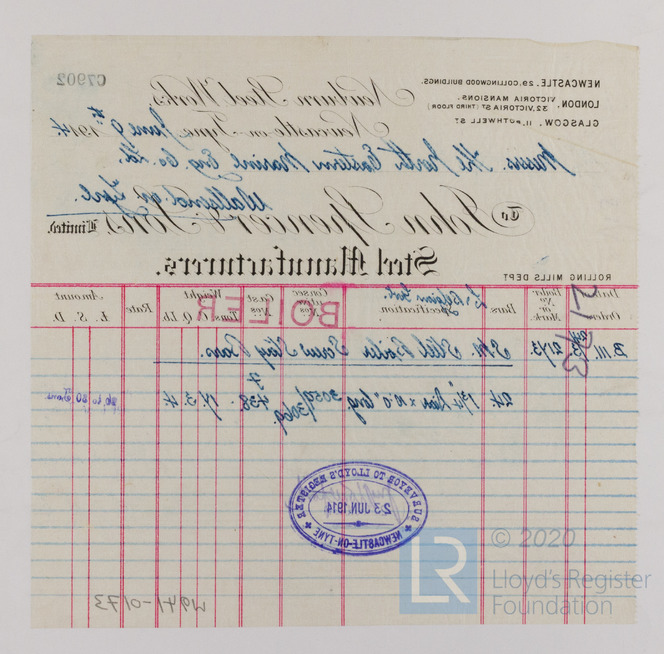 C7902
NEWCASTLE. 29, COLLINGWOOD BUILDINGS.
LONDON. VICTORIA MANSIONS. 32, VICTORIA ST (THIRD FLOOR)
GLASGOW. 11, BOTHWELL ST
Newburn Steel Works
Newcastle on Tyne, June 9th 1914
Messrs The North Eastern Marine Eng. Co. Ld.
Wallsend on Tyne.
To John Spencer & Sons, Limited.
Steel Manufacturers.
ROLLING MILLS DEPT
Order Boiler No or Mark. Bars Specification. Consec Nos Cast Nos. Weight Tons. Q. Lb. Rate Amount £. S. D.
BOILER
B.111. 2173. S.M. Steel Boiler Screw Stay Bars.
24. 1¾" Dia x 10'0" long. 3059/3069. 438. 17.3.4. 26 to 30 Tons
SURVEYOR TO LLOYD'S REGISTER
23 JUN. 1914
NEWCASTLE-ON-TYNE
W941-0173
© 2020
LR
Lloyd's Register
Foundation